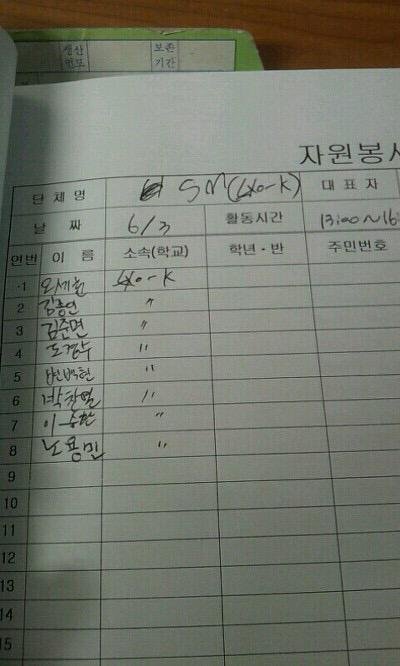 생산
연도
보존
기간
자원봉사
단체명 SM(EXO-K) 대표자
날짜 6/3 활동시간 13:00~16
연번 이름 소속(학교) 학년·반 주민번호
1 오세훈 EXO-K
2 김종인 〃
3 김준면 〃
4 도경수 〃
5 변백현 〃
6 박찬열 〃
7 이승환 〃
8 노용민 〃
9
10
11
12
13
14
15